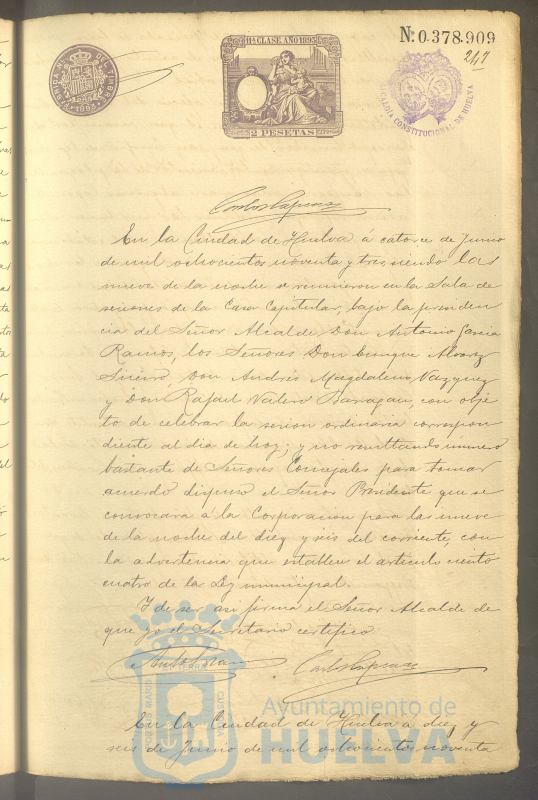 Nº 0.378.909
247
11ª CLASE AÑO 1893
2 PESETAS
1893
ALCALDIA CONSTITUCIONAL DE HUELVA
En la Ciudad de Huelva á catorce de Junio
de mil ochocientos noventa y tres, siendo las
nueve de la noche se reunieron en la Sala de
sesiones de la Casa Capitular, bajo la presiden
cia del Señor Alcalde Don Antonio Garcia
Ramos, los Señores Don Enrique Alvarez
Don Andrés Magdaleno Vazquez
y Don Rafael Valero Baragan, con obje
to de celebrar la sesion ordinaria correspon
diente al dia de hoy; y no resultando número
bastante de Señores Concejales para tomar
acuerdo dispuso el Señor Presidente que se
convocara á la Corporacion para las nueve
de la noche del diez y seis del corriente, con
la advertencia que establece el articulo ciento
cuatro de la Ley municipal.
Y de ser asi firma el Señor Alcalde de
que yo el Secretario certifico
En la Ciudad de Huelva a diez y
seis de Junio de mil ochocientos noventa
Ayuntamiento de
HUELVA